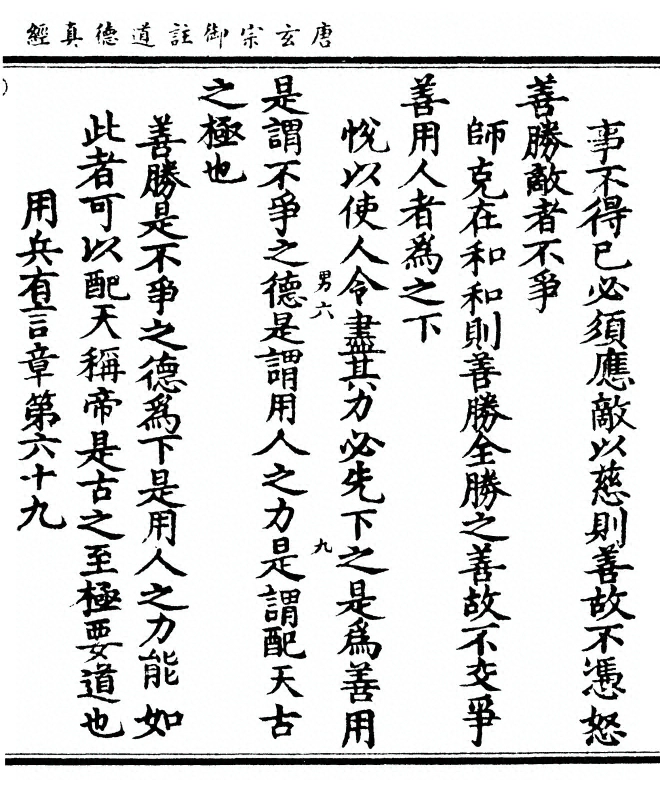 唐玄宗御註道德真經
事不得已必須應敵以慈則善故不憑怒
善勝敵者不爭
師克在和和則善勝全勝之善故不交爭
善用人者為之下
悅以使人令盡其力必先下之是為善用
男六
九
是謂不爭之德是謂用人之力是謂配天古
之極也
善勝是不爭之德為下是用人之力能如
此者可以配天稱帝是古之至極要道也
用兵有言章第六十九